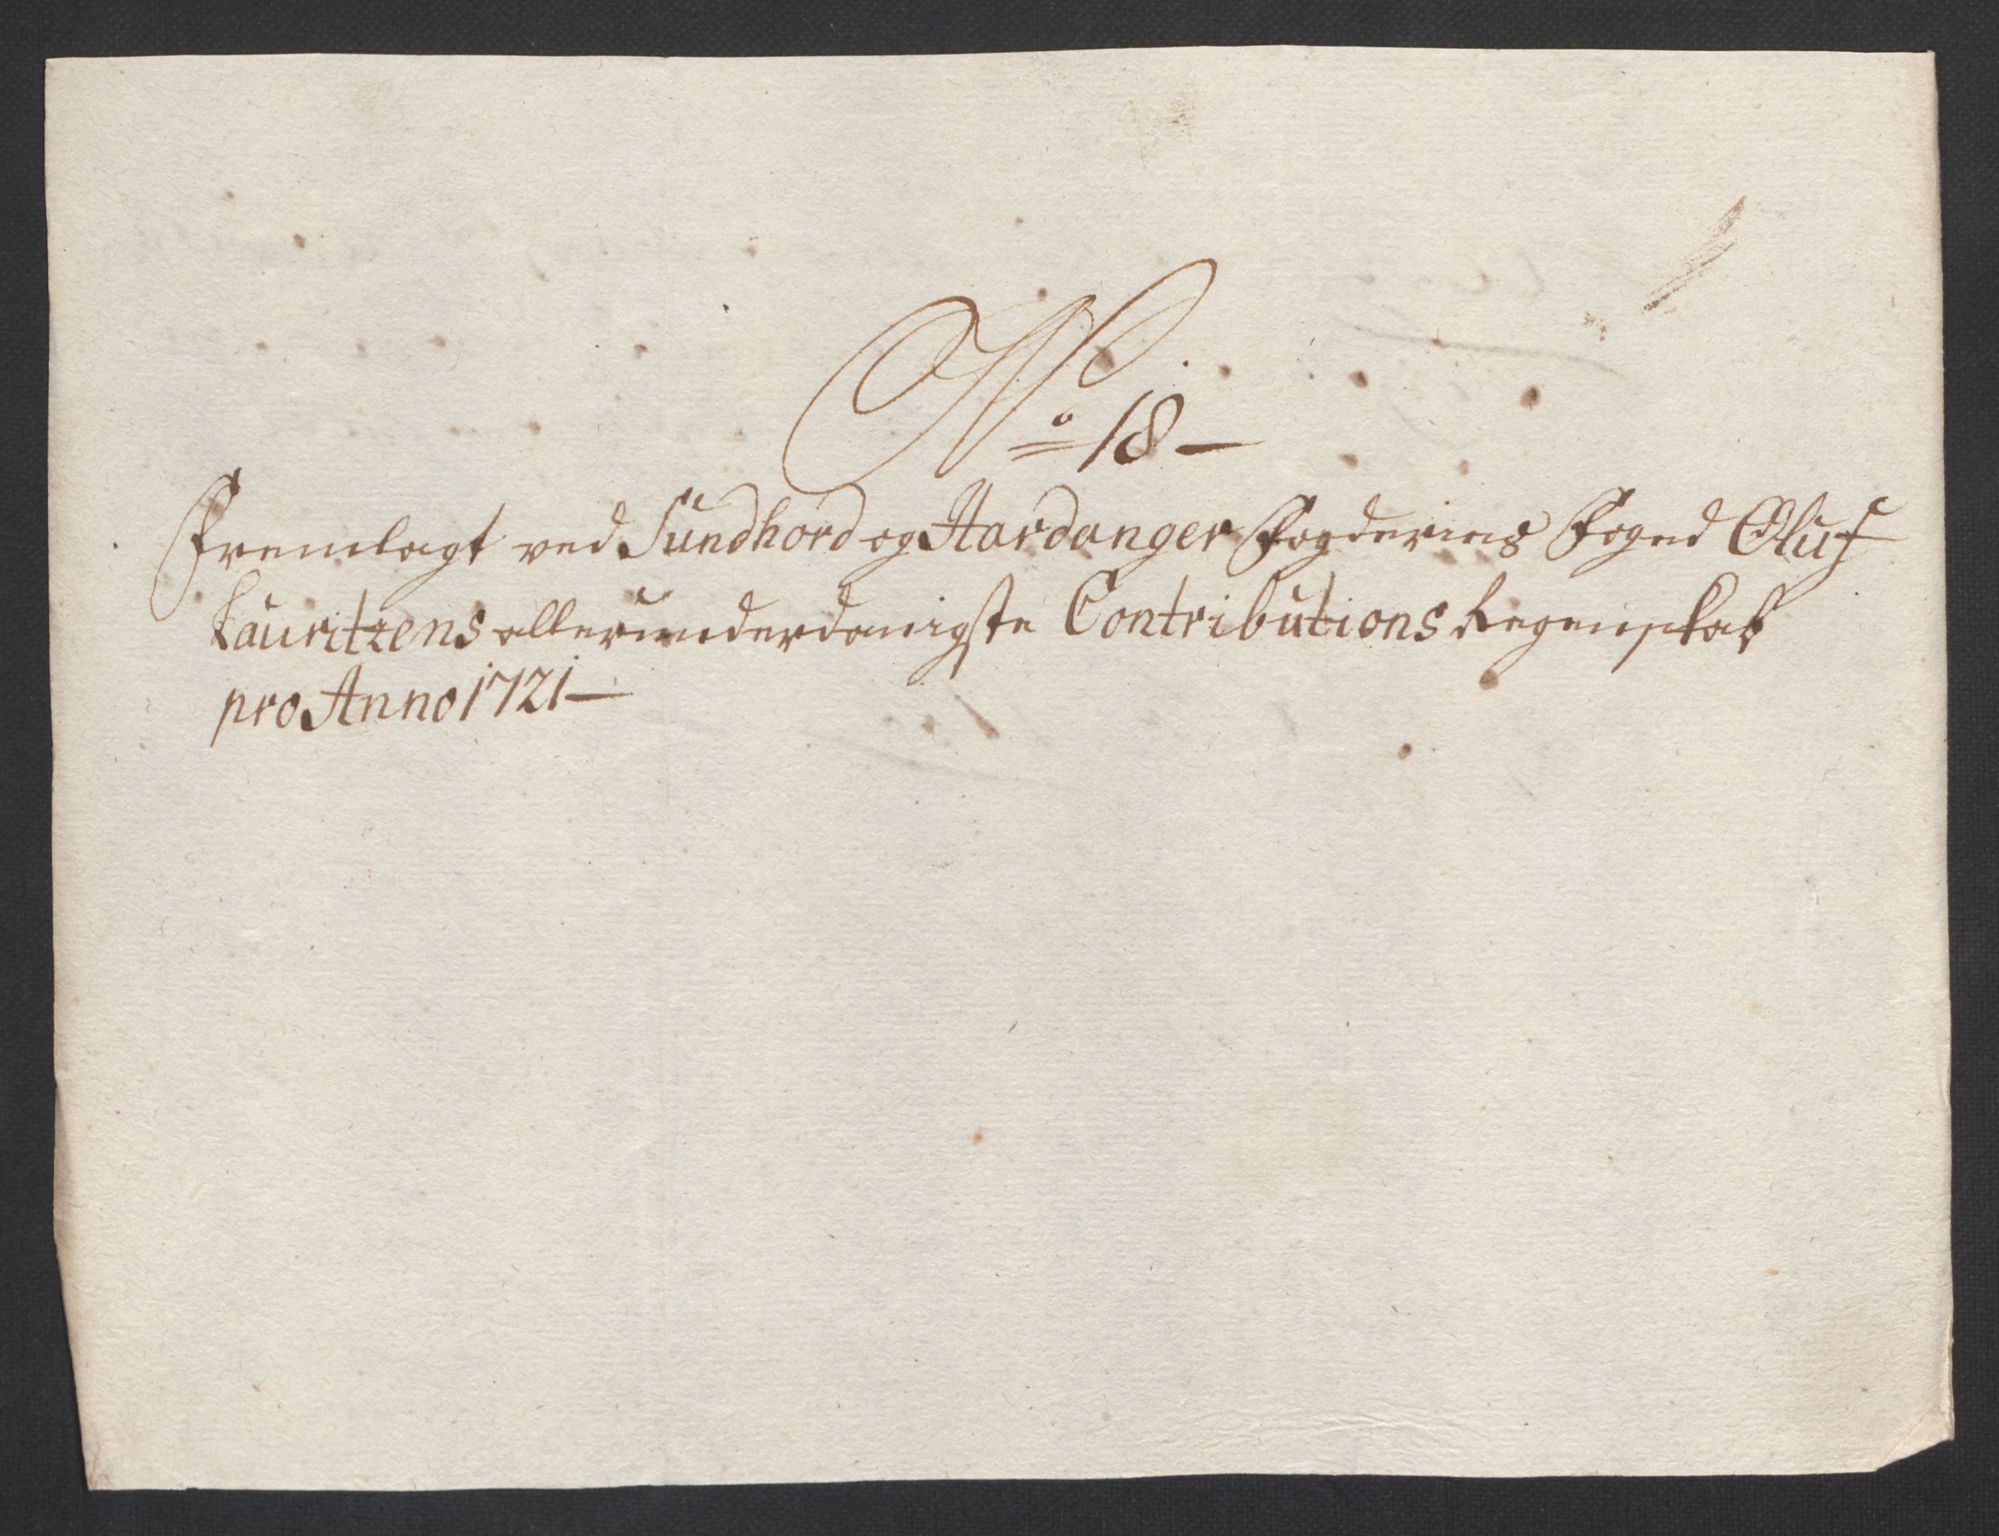 No 18 —
Fremlagt ved Sundhord og Hardanger Fogderies Foged Oluf
Lauritzens allerunderdanigste Contributions Regenskab
pro Anno 1721 —